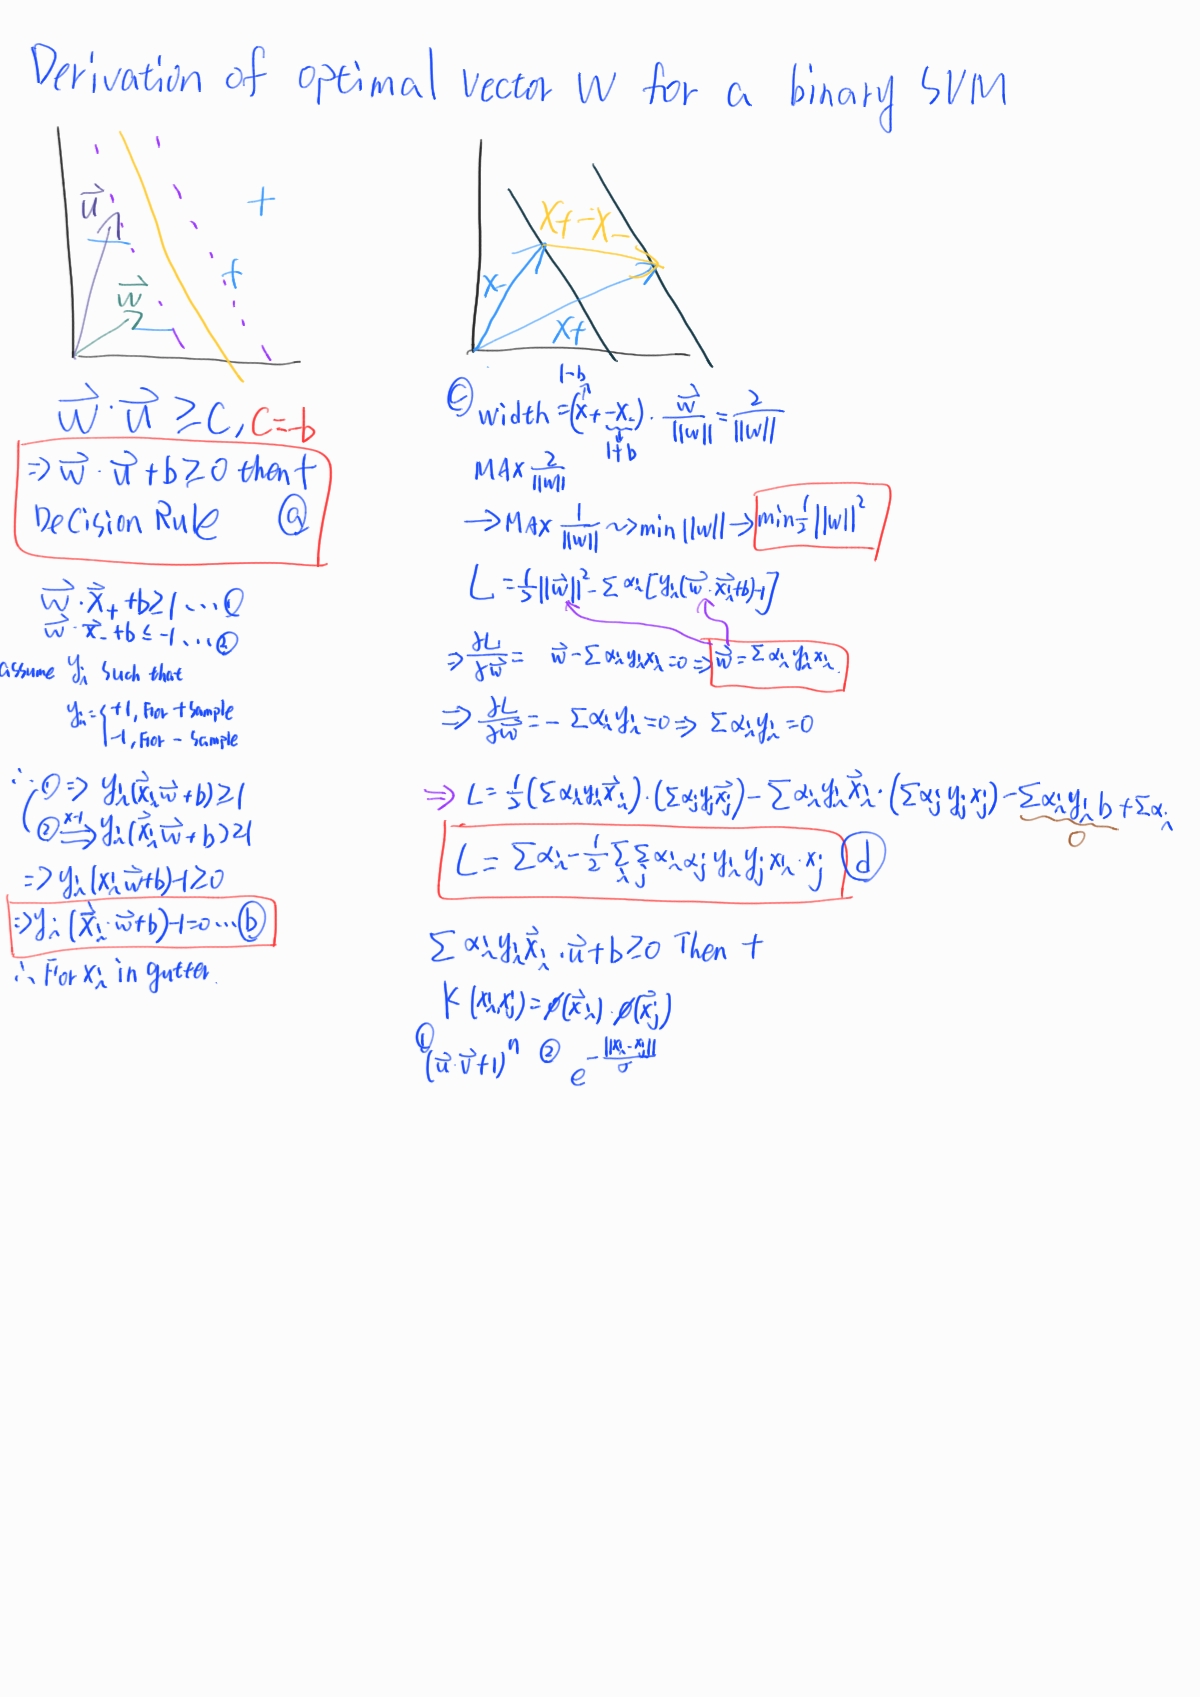 Derivation of optimal vector W for a binary SVM
u⃗
+
+
w⃗
w⃗ · u⃗ ≥ C, C=-b
⇒ w⃗ · u⃗ + b ≥ 0 then +
Decision Rule ⓐ
w⃗ · x⃗₊ + b ≥ 1 ... ①
w⃗ · x⃗₋ + b ≤ -1 ... ②
assume yᵢ such that
yᵢ = { +1, For + sample
-1, For - sample
∴ ① ⇒ yᵢ(x⃗ᵢ w⃗ + b) ≥ 1
② ×-1 ⇒ yᵢ(x⃗ᵢ w⃗ + b) ≥ 1
⇒ yᵢ(xᵢ w⃗ + b) - 1 ≥ 0
⇒ yᵢ(x⃗ᵢ · w⃗ + b) - 1 = 0 ... ⓑ
∴ For xᵢ in gutter.
X₊ - X₋
X₋
X₊
1-b
ⓒ width = (x₊ - x₋) · w⃗/||w|| = 2/||w||
1+b
MAX 2/||w||
→ MAX 1/||w|| ~> min ||w|| → min ½ ||w||²
L = ½||w⃗||² - Σ αᵢ [yᵢ(w⃗ · x⃗ᵢ + b) - 1]
⇒ ∂L/∂w⃗ = w⃗ - Σ αᵢ yᵢ xᵢ = 0 ⇒ w⃗ = Σ αᵢ yᵢ xᵢ.
⇒ ∂L/∂w⃗ = - Σ αᵢ yᵢ = 0 ⇒ Σ αᵢ yᵢ = 0
⇒ L = ½(Σ αᵢ yᵢ x⃗ᵢ) · (Σ αⱼ yⱼ x⃗ⱼ) - Σ αᵢ yᵢ x⃗ᵢ · (Σ αⱼ yⱼ xⱼ) - Σ αᵢ yᵢ b + Σ αᵢ
0
L = Σ αᵢ - ½ Σᵢ Σⱼ αᵢ αⱼ yᵢ yⱼ xᵢ · xⱼ ⓓ
Σ αᵢ yᵢ x⃗ᵢ · u⃗ + b ≥ 0 Then +
K(xᵢ, xⱼ) = ø(x⃗ᵢ) · ø(x⃗ⱼ)
① (u⃗ · v⃗ + 1)ⁿ ② e^(-||xᵢ - xⱼ||/σ)